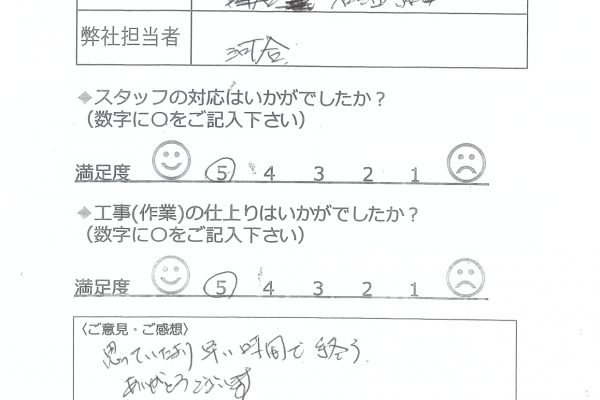 弊社担当者
河合
◈スタッフの対応はいかがでしたか？
（数字に〇をご記入下さい）
満足度 5 4 3 2 1
◈工事(作業)の仕上りはいかがでしたか？
（数字に〇をご記入下さい）
満足度 5 4 3 2 1
〈ご意見・ご感想〉
思っていたより 早い時間で 終う
ありがとうございます